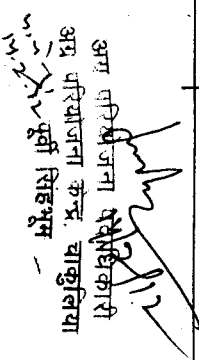 अग्र परियोजना पदाधिकारी
अग्र परियोजना केन्द्र, चाकुलिया
पूर्वी सिंहभूम